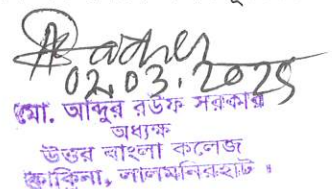 02.03.2025
মো. আব্দুর রউফ সরকার
অধ্যক্ষ
উত্তর বাংলা কলেজ
কাকিনা, লালমনিরহাট।